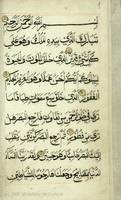 بسم الله الرحمن الرحيم
تبارك الذي بيده الملك وهو على
كل شيء قدير الذي خلق الموت والحيوة
ليبلوكم أيكم أحسن عملا وهو العزيز
الغفور الذي خلق سبع سموات طباقا ما
ترى في خلق الرحمن من تفاوت فارجع البصر
هل ترى من فطور ثم ارجع البصر كرتين ينقلب
إليك البصر خاسئا وهو حسير ولقد زينا السماء
الدنيا بمصابيح وجعلناها رجوما